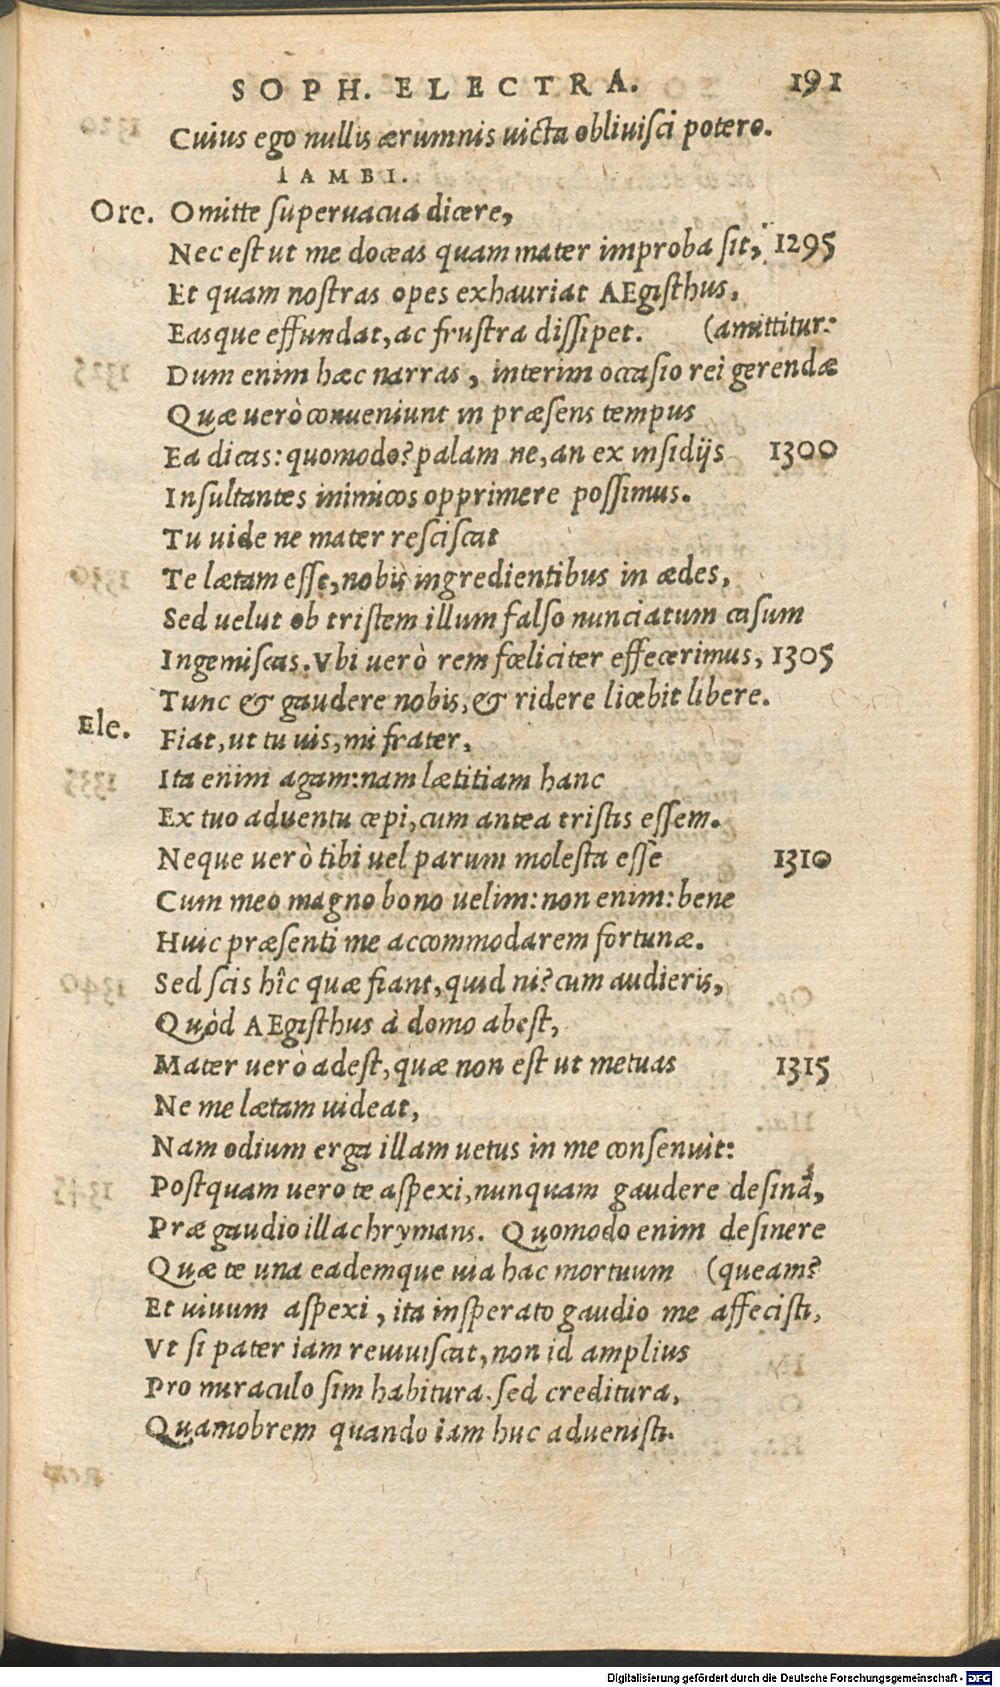 SOPH. ELECTRA. 191
Cuius ego nullis ærumnis uicta obliuisci potero.
IAMBI.
Ore. Omitte superuacua dicere,
Nec est ut me doceas quam mater improba sit, 1295
Et quam nostras opes exhauriat AEgisthus,
Easque effundat, ac frustra dissipet. (amittitur:
Dum enim hæc narras, interim occasio rei gerendæ
Quæ uerò conueniunt in præsens tempus
Ea dicas: quomodo? palam ne, an ex insidijs 1300
Insultantes inimicos opprimere possimus.
Tu uide ne mater resciscat
Te lætam esse, nobis ingredientibus in ædes,
Sed uelut ob tristem illum falso nunciatum casum
Ingemiscas. Vbi uerò rem fœliciter effecerimus, 1305
Tunc & gaudere nobis, & ridere licebit libere.
Ele. Fiat, ut tu uis, mi frater,
Ita enim agam: nam lætitiam hanc
Ex tuo aduentu cepi, cum antea tristis essem.
Neque uerò tibi uel parum molesta esse 1310
Cum meo magno bono uelim: non enim: bene
Huic præsenti me accommodarem fortunæ.
Sed scis hîc quæ fiant, quid ni? cum audieris,
Quòd AEgisthus à domo abest,
Mater uerò adest, quæ non est ut metuas 1315
Ne me lætam uideat,
Nam odium erga illam uetus in me consenuit:
Postquam uero te aspexi, nunquam gaudere desinã,
Præ gaudio illachrymans. Quomodo enim desinere
Quæ te una eademque uia hac mortuum (queam?
Et uiuum aspexi, ita insperato gaudio me affecisti,
Vt si pater iam reuiuiscat, non id amplius
Pro miraculo sim habitura. sed creditura,
Quamobrem quando iam huc aduenisti.
Digitalisierung gefördert durch die Deutsche Forschungsgemeinschaft - DFG